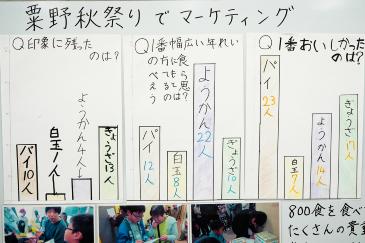 粟野秋祭りでマーケティング
Q印象に残った
のは?
パイ10人
白玉1人
ようかん4人
ぎょうざ13人
Q1番幅広い年れい
の方に食
べてもら
えると思
うのは?
パイ12人
白玉8人
ようかん22人
ぎょうざ10人
Q1番おいしかった
のは?
パイ23人
白玉7人
ようかん14人
ぎょうざ17人
800食を食べ
たくさんの貴重